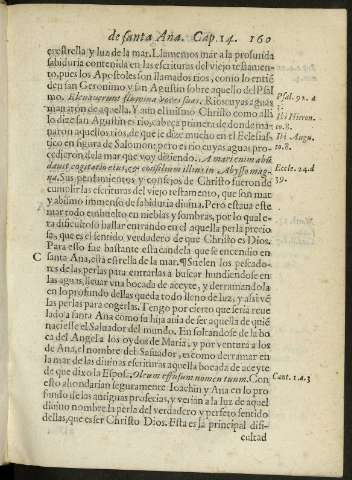 de santa Ana. Cap. 14. 160
es estrella y luz de la mar. Llamemos mar a la profunda
sabiduria contenida en las escrituras del viejo testamen-
to, pues los Apostoles son llamados rios, como lo entiē
den san Geronimo y san Agustin sobre aquello del Psal
mo. Eleuauerunt flumina voces suas. Rios cuyas aguas
manaron de aquella. Y aun el mismo Christo como alli
lo dize san Agustin es rio, cabeça primera de donde ma-
naron aquellos rios, de que se dize mucho en el Eclesias-
tico en figura de Salomon: pero es rio cuyas aguas pro-
cedieron de la mar que voy diziendo. A mari enim abū
dauit cogitatio eius, & consilium illius in Abysso mag-
na. Sus pensamientos y consejos de Christo fueron de
cumplir las escrituras del viejo testamento, que son mar
y abismo immenso de sabiduria diuina. Pero estaua este
mar todo embuelto en nieblas y sombras, por lo qual e-
ra dificultoso hallar entrando en el aquella perla precio
sa, que es el sentido verdadero de que Christo es Dios.
Para esto fue bastante esta candela que se encendio en
C santa Ana, esta estrella de la mar. ¶ Suelen los pescado-
res de las perlas para entrarlas a buscar hundiendose en
las aguas, lleuar vna bocada de azeyte, y derramandola
en lo profundo dellas queda todo lleno de luz, y assi vē
las perlas para cogerlas. Tengo por cierto que seria reue
lado a santa Ana como su hija auia de ser aquella de quiē
naciesse el Saluador del mundo. En soltandose de la bo
ca del Angel a los oydos de Maria, y por ventura a los
de Ana, el nombre del Saluador, es como derramar en
la mar de las diuinas escrituras aquella bocada de azeyte
de que dixo la Esposa, Oleum effusum nomen tuum. Con
esto ahondarian seguramente Ioachin y Ana en lo pro
fundo de las antiguas profecias, y verian a la luz de aquel
diuino nombre la perla del verdadero y perfeto sentido
dellas, que es ser Christo Dios. Esta es la principal difi-
cultad
Psal. 92. a
3.
Ibi Hieron.
to. 8.
Ibi Augu.
to. 8.
Eccle. 24. d
39.
Cant. 1. a. 3